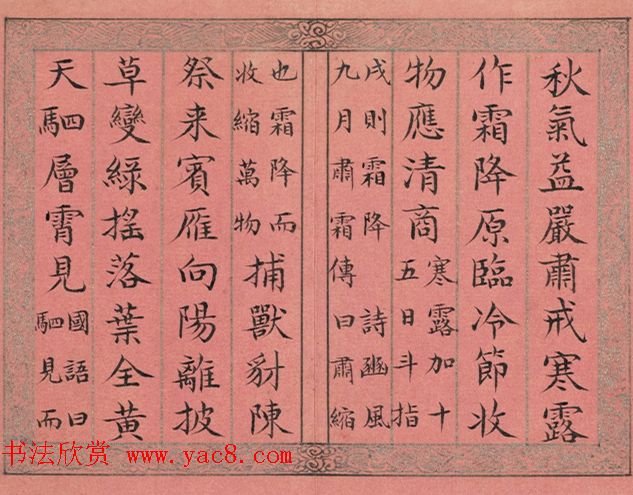 秋氣益嚴肅戒寒露
作霜降原臨冷節收
物應清商
寒露加十
五日斗指
戌則霜降 詩豳風
九月肅霜傳曰肅縮
也霜降而
收縮萬物
捕獸豺陳
祭来賓雁向陽離披
草變綠搖落葉全黃
天駟層霄見
國語曰
駟見而
书法欣赏 www.yac8.com